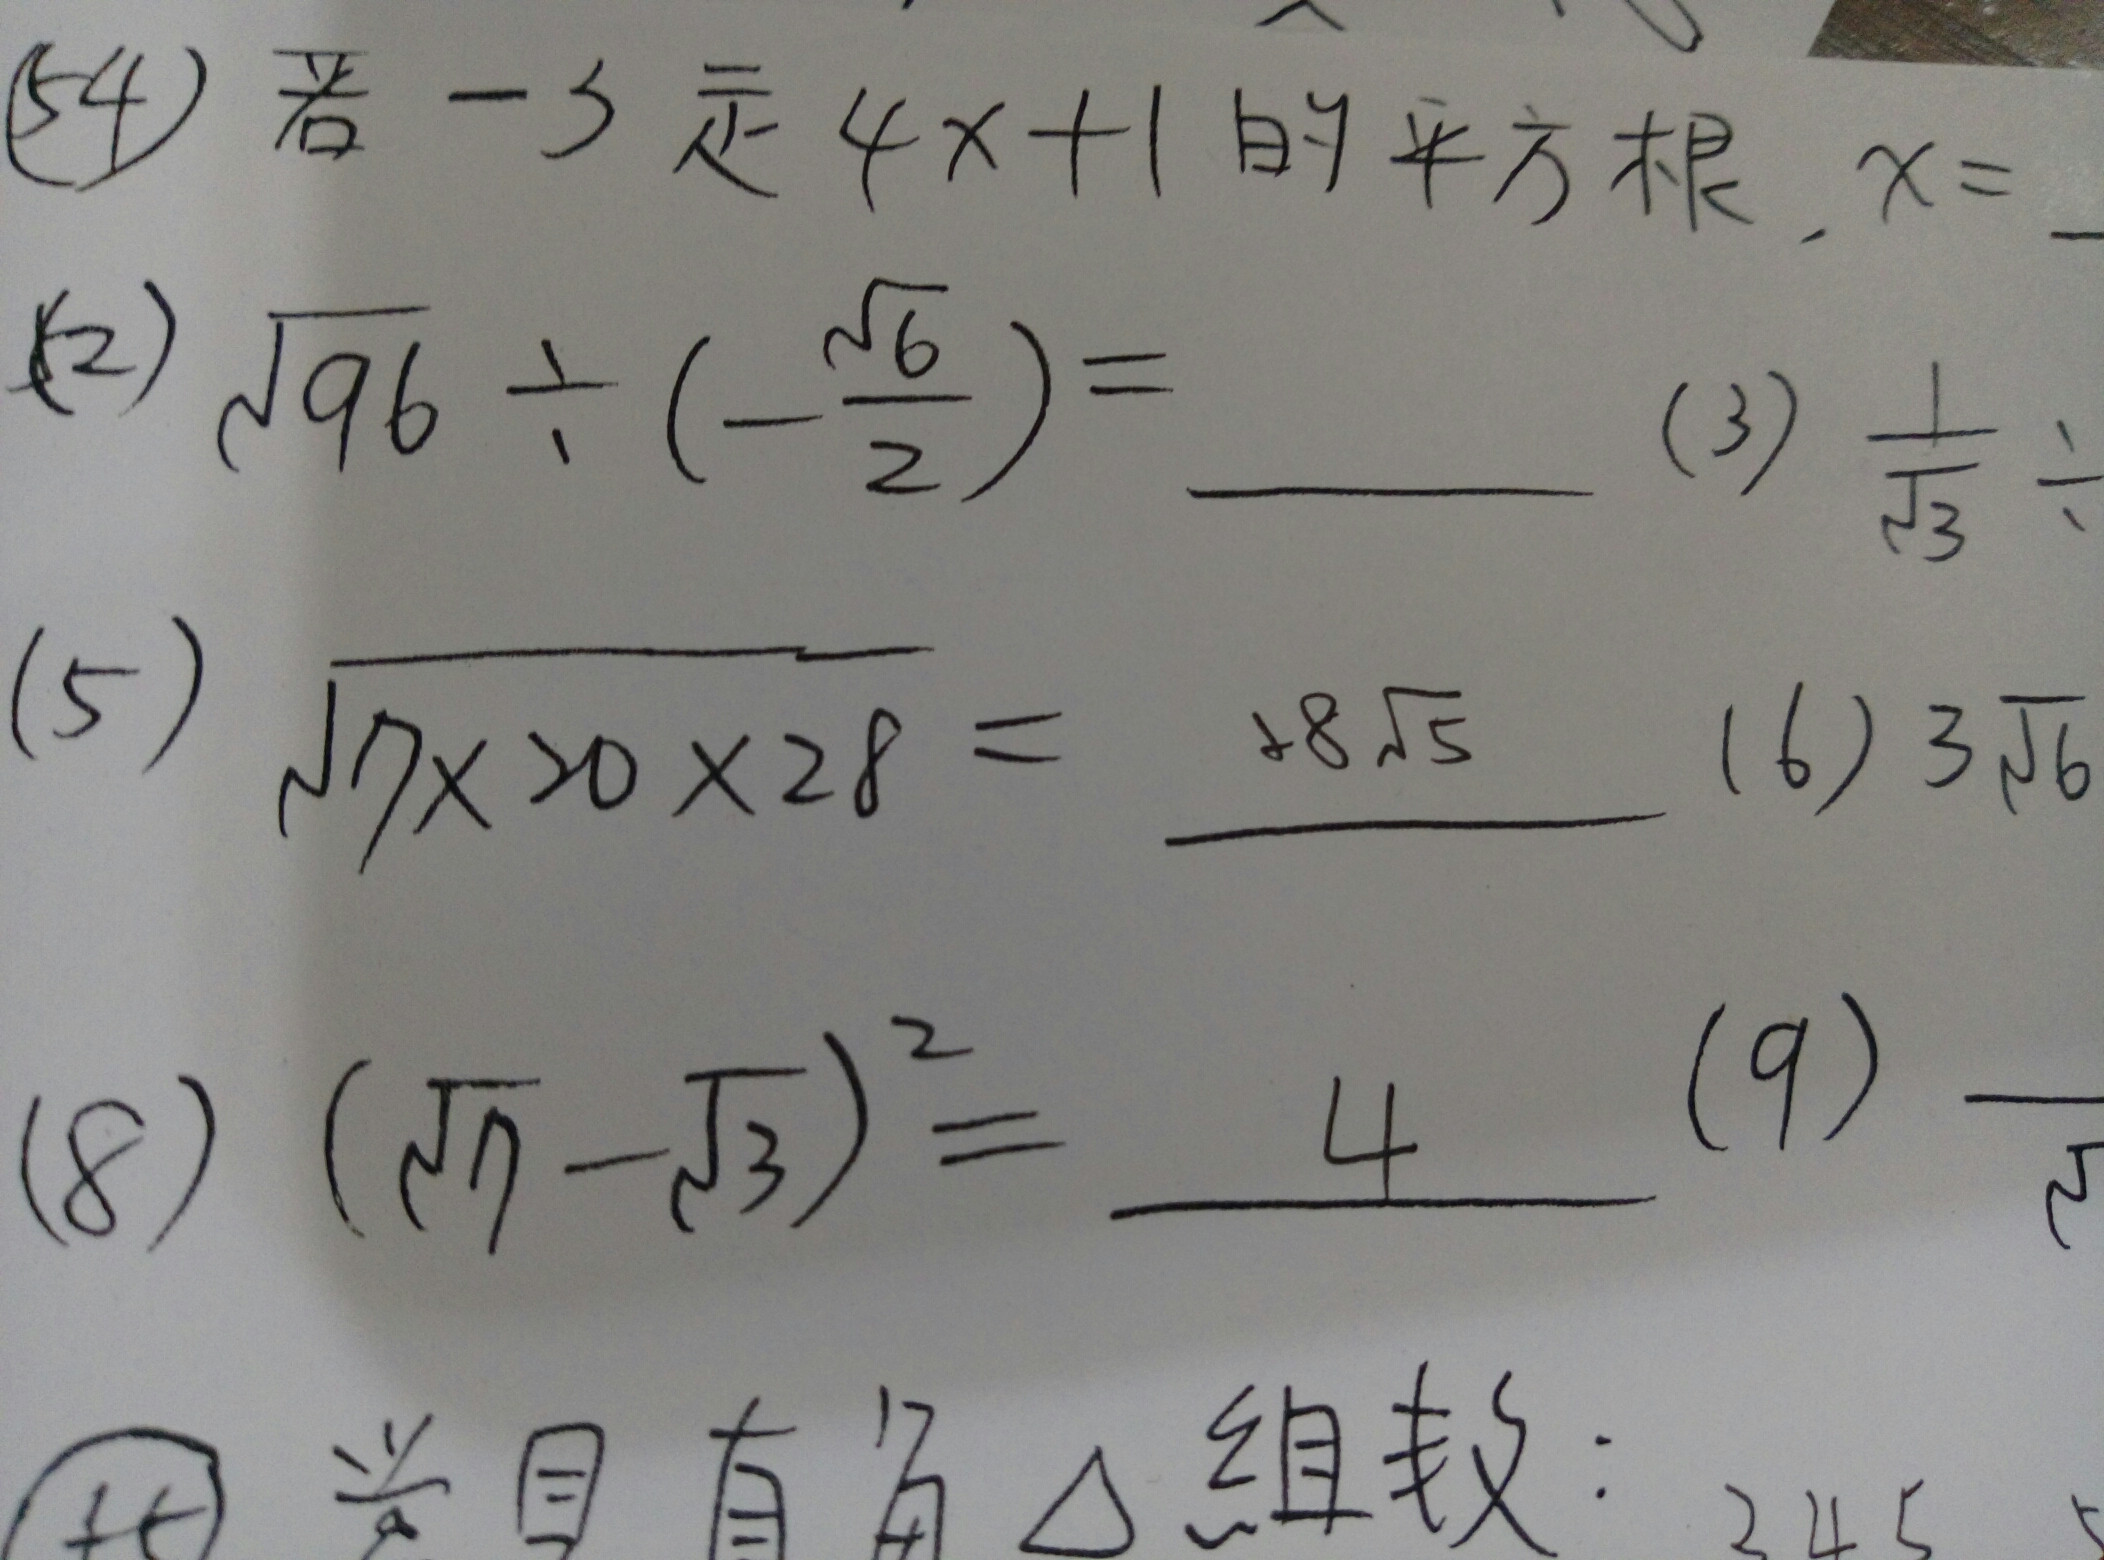 (54) 若 -3 是 4x+1 的平方根, x=
(2) √96 ÷ (-√6/2) = ____ (3) 1/√3 ÷
(5) √(7×20×28) = 28√5 (6) 3√6
(8) (√7-√3)² = 4 (9)
常見直角△組数: 345